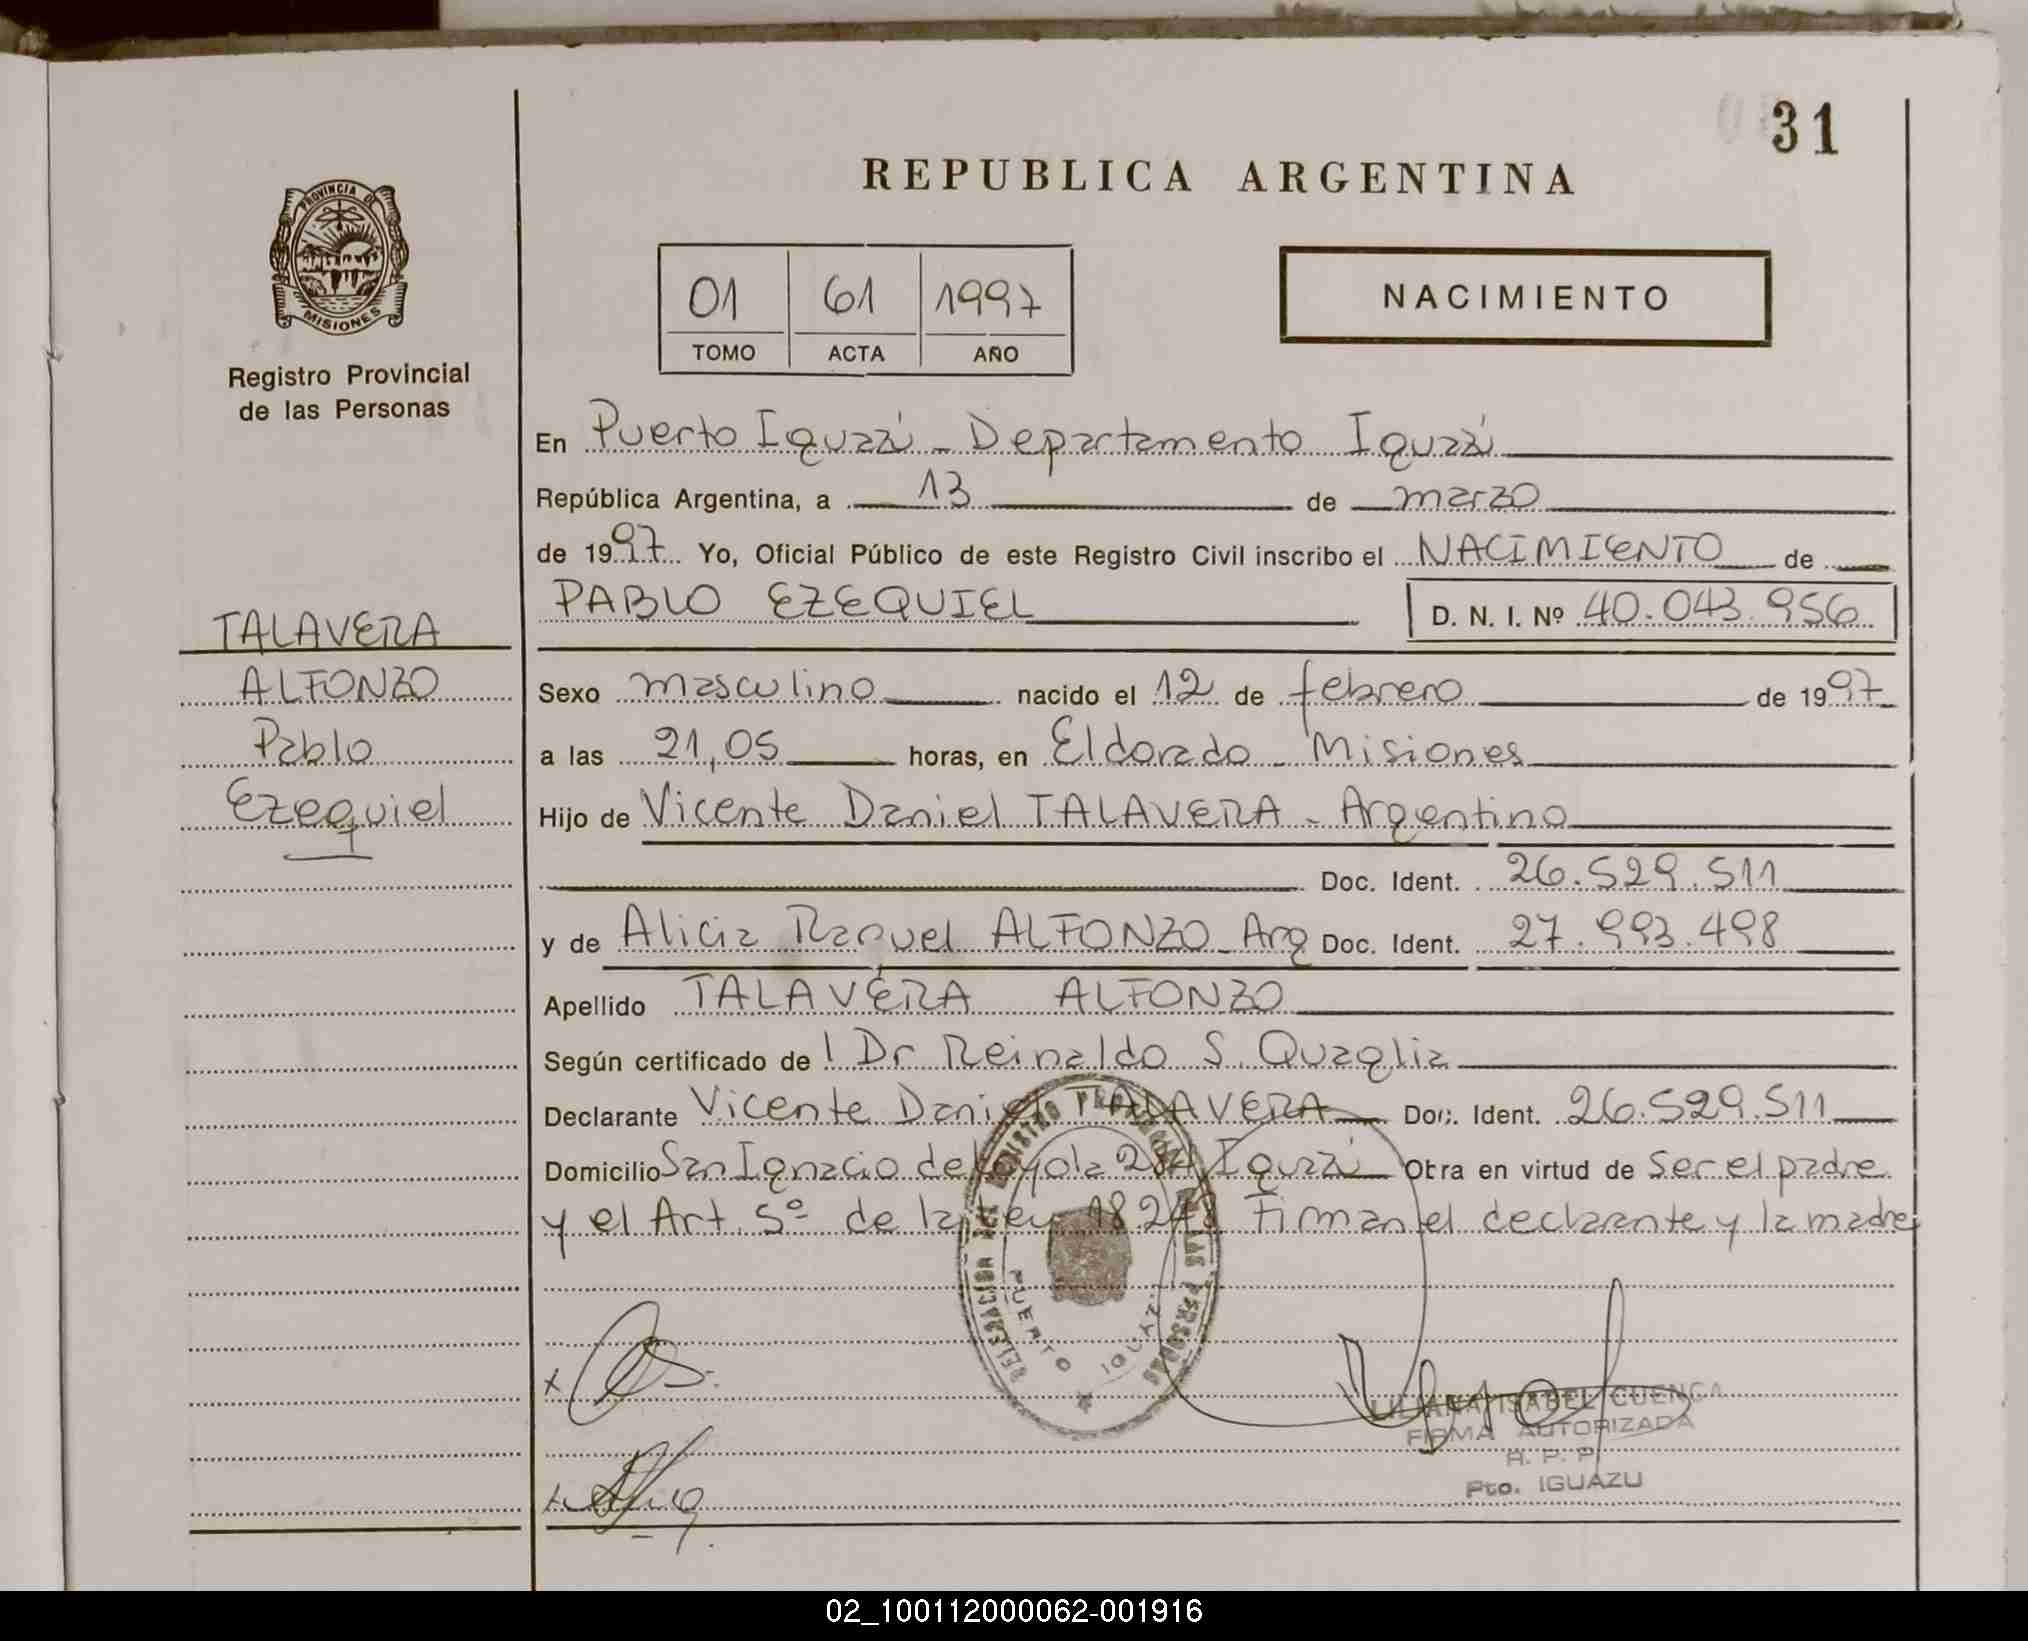 31
REPUBLICA ARGENTINA
PROVINCIA DE
MISIONES
Registro Provincial
de las Personas
01 61 1997
TOMO ACTA AÑO
NACIMIENTO
En Puerto Iguazú - Departamento Iguazú
República Argentina, a 13 de marzo
de 1997 Yo, Oficial Público de este Registro Civil inscribo el NACIMIENTO de
PABLO EZEQUIEL D. N. I. Nº 40.043.956
TALAVERA
ALFONZO
Pablo
Ezequiel
Sexo masculino nacido el 12 de febrero de 1997
a las 21,05 horas, en Eldorado - Misiones
Hijo de Vicente Daniel TALAVERA - Argentino
Doc. Ident. 26.529.511
y de Alicia Raquel ALFONZO - Arg Doc. Ident. 27.993.498
Apellido TALAVERA ALFONZO
Según certificado de l Dr Reinaldo S. Quaglia
Declarante Vicente Daniel TALAVERA Doc. Ident. 26.529.511
Domicilio San Ignacio de Loyola 284 Iguazú Obra en virtud de ser el padre
y el Art. 5º de la Ley 18.248 Firman el declarante y la madre
DELEGACION DEL REGISTRO PROVINCIAL DE LAS PERSONAS
PUERTO IGUAZU
LILIANA ISABEL CUENCA
FIRMA AUTORIZADA
R. P. P.
Pto. IGUAZU
02_100112000062-001916